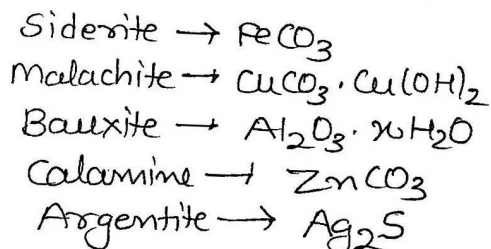 Siderite → FeCO₃
Malachite → CuCO₃·Cu(OH)₂
Bauxite → Al₂O₃·xH₂O
Calamine → ZnCO₃
Argentite → Ag₂S